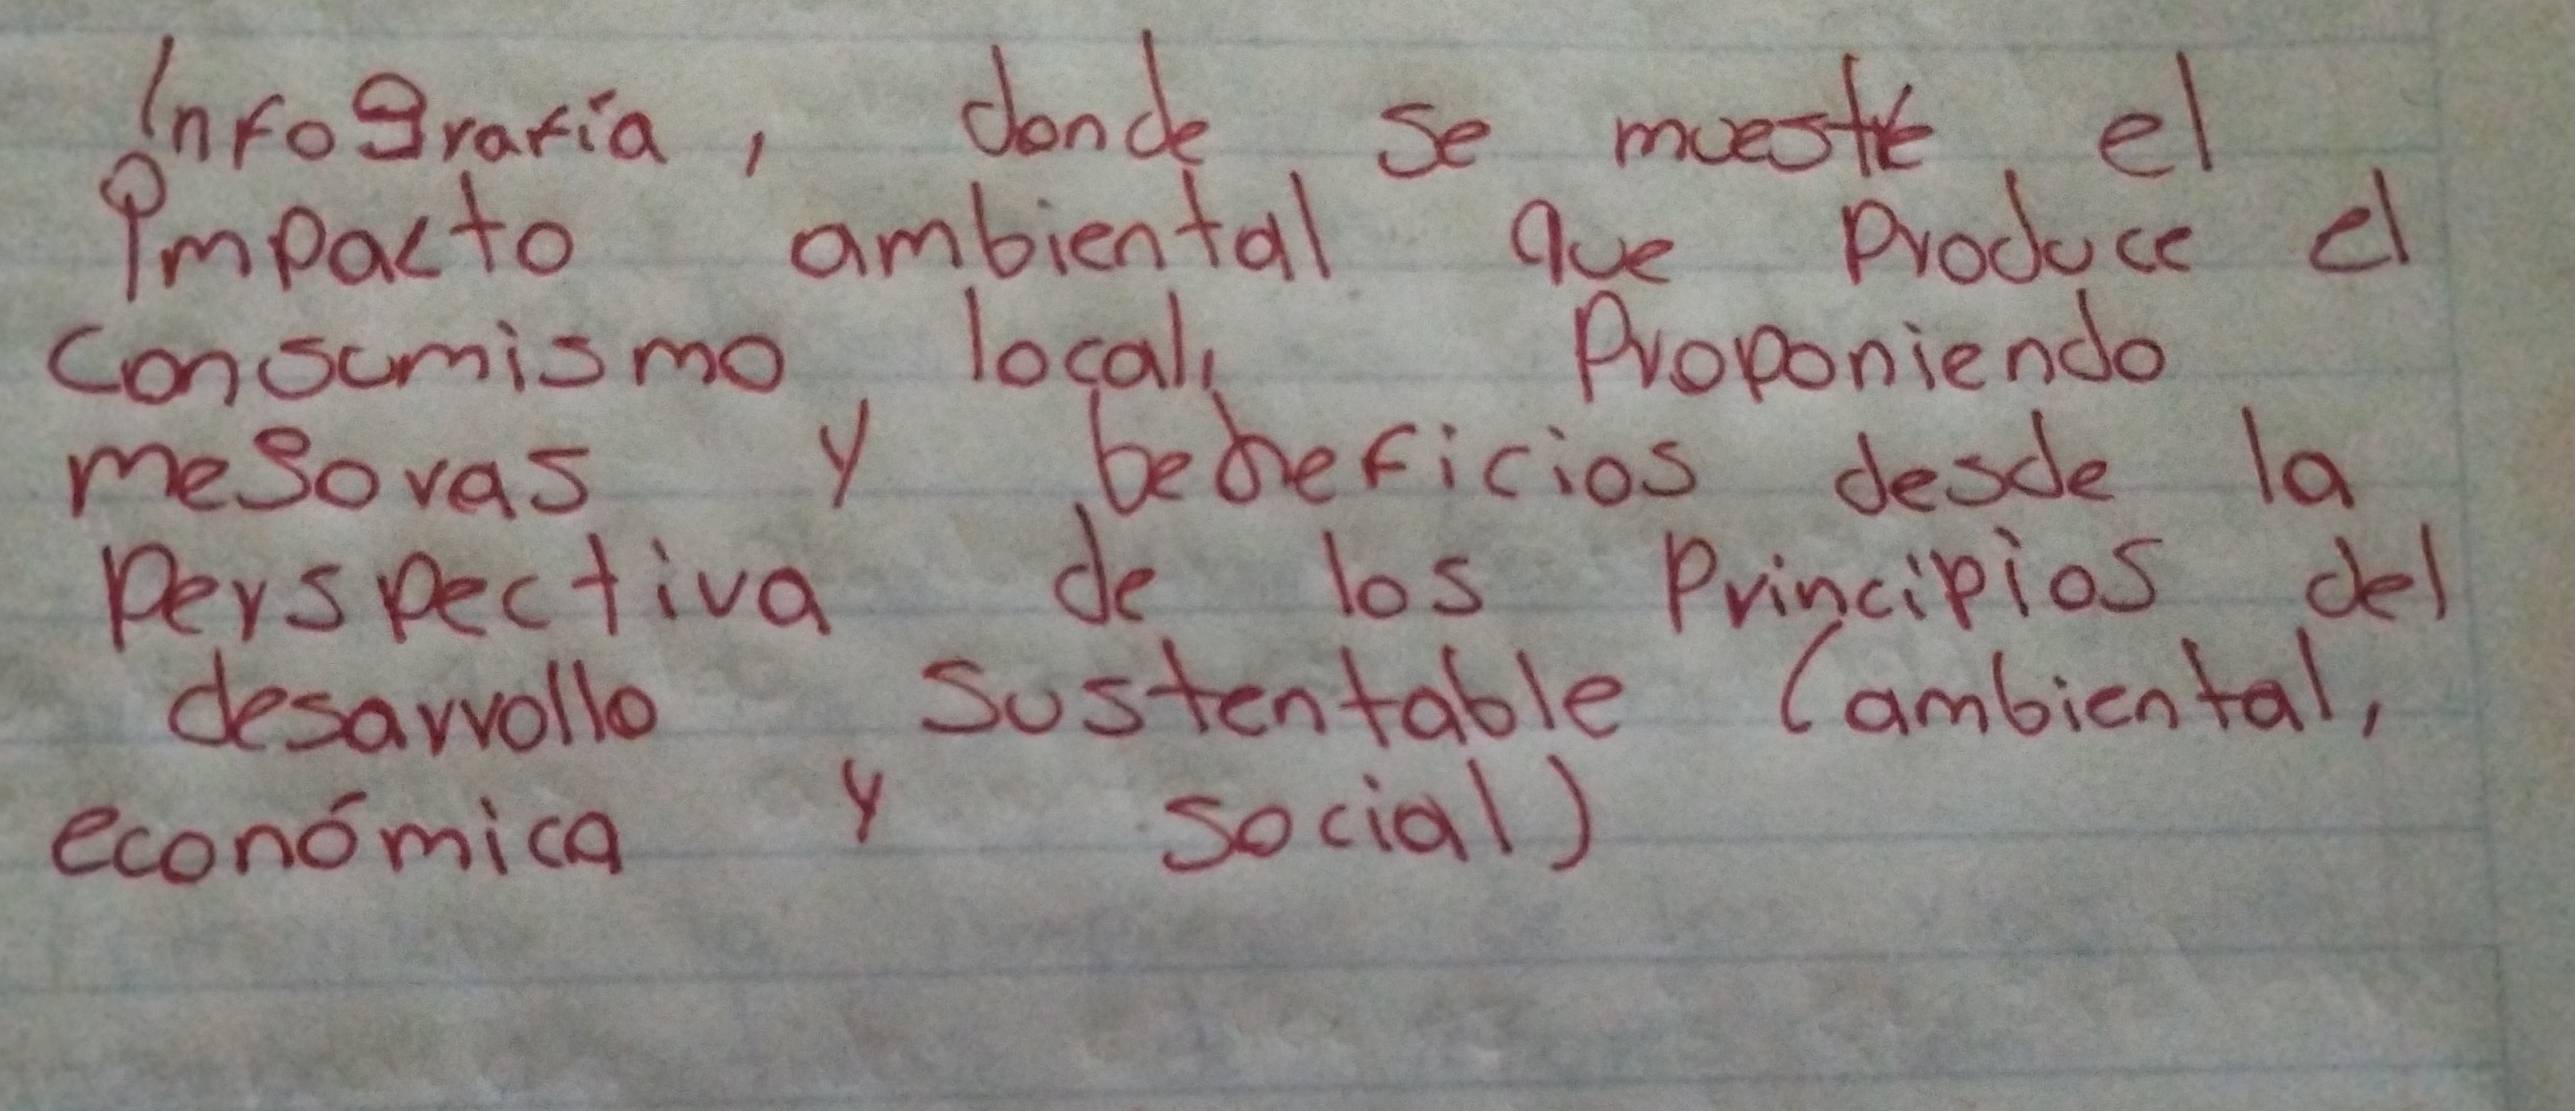 Infografía, donde se muestre el
impacto ambiental que produce el
consumismo local, proponiendo
mesoras y beneficios desde la
perspectiva de los principios del
desarrollo sustentable (ambiental,
económica y social)